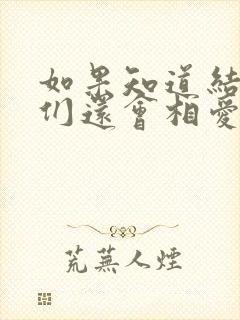 如果知道結
们還會相愛
荒蕪人煙